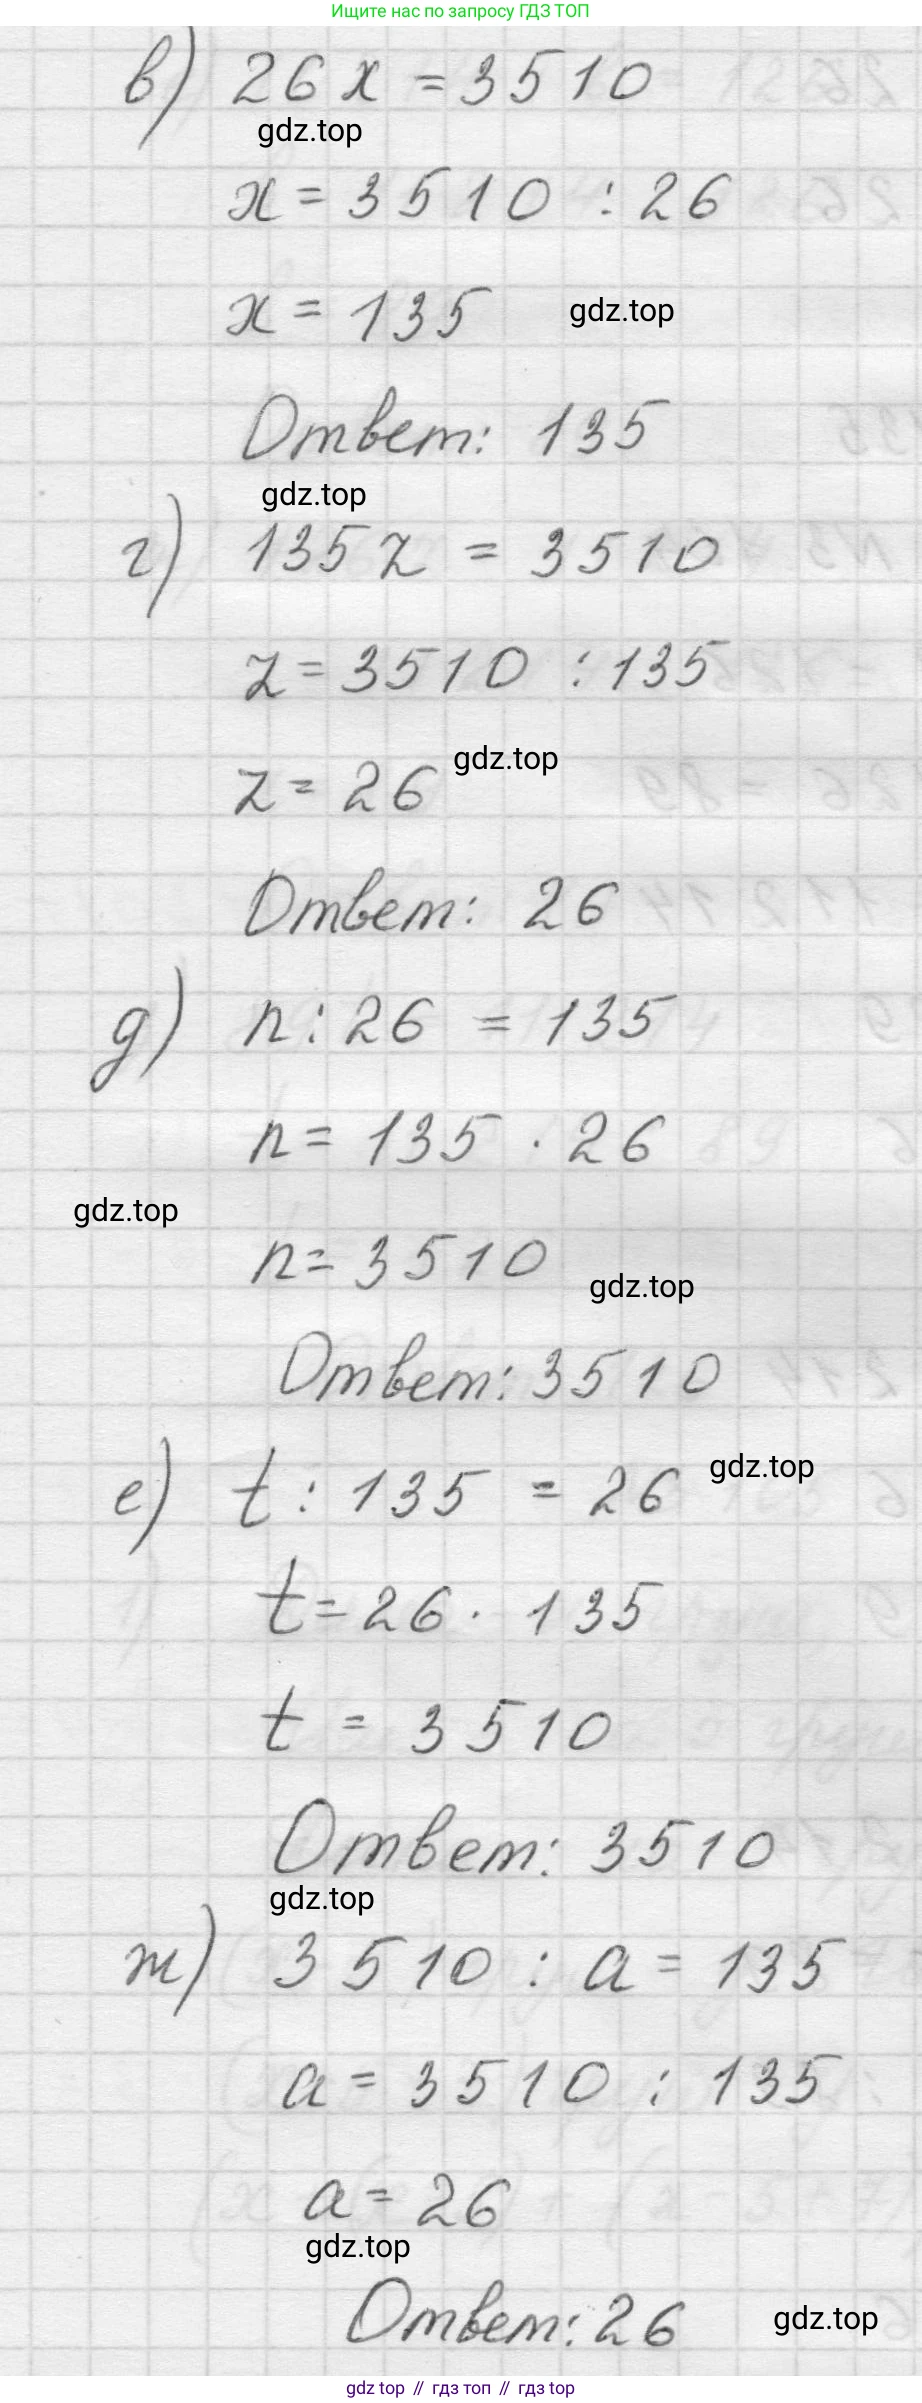 Ищите нас по запросу ГДЗ ТОП
в) 26x = 3510
gdz.top
x = 3510 : 26
x = 135
gdz.top
Ответ: 135
gdz.top
г) 135z = 3510
z = 3510 : 135
z = 26
gdz.top
Ответ: 26
д) n : 26 = 135
n = 135 · 26
gdz.top
n = 3510
gdz.top
Ответ: 3510
gdz.top
е) t : 135 = 26
t = 26 · 135
t = 3510
Ответ: 3510
gdz.top
ж) 3510 : a = 135
a = 3510 : 135
a = 26
gdz.top
Ответ: 26
gdz.top
gdz top // гдз топ // gdz top